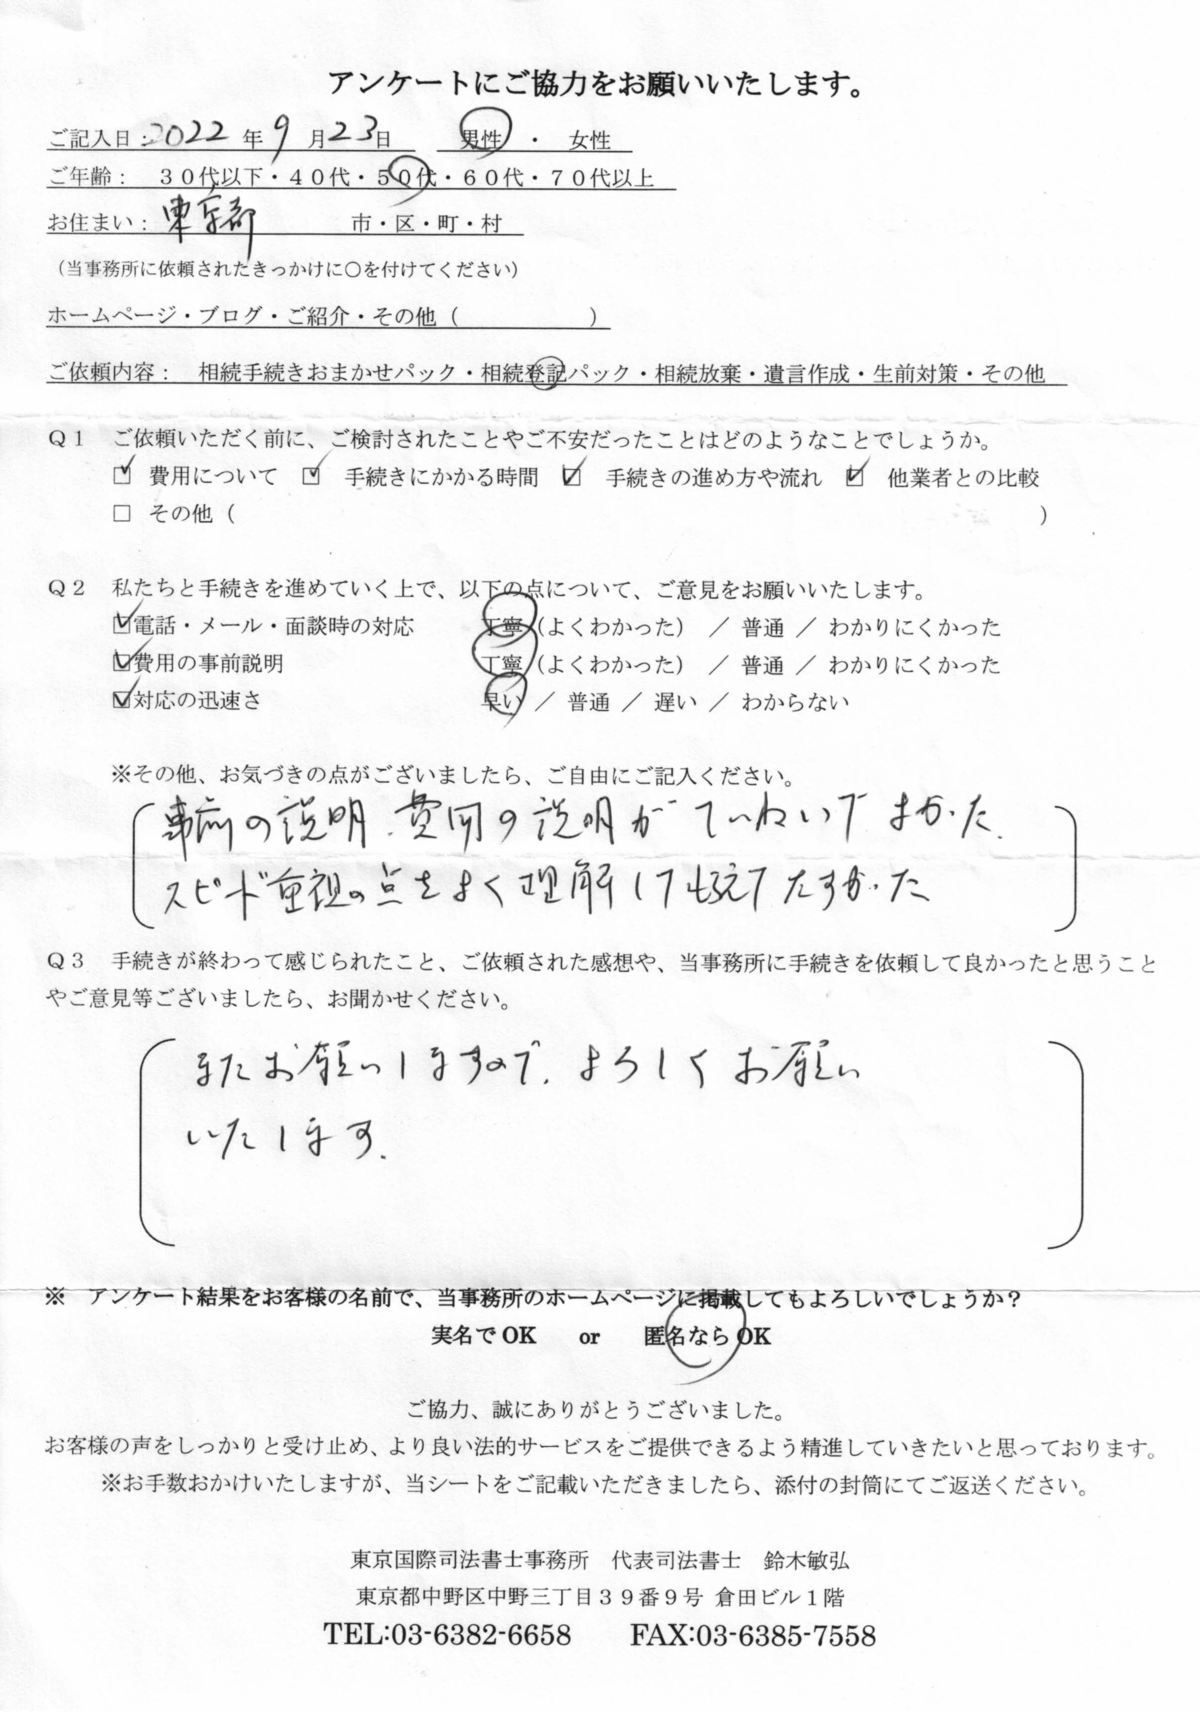 アンケートにご協力をお願いいたします。
ご記入日：2022年9月23日　男性・女性
ご年齢：　30代以下・40代・50代・60代・70代以上
お住まい：東京都　市・区・町・村
（当事務所に依頼されたきっかけに○を付けてください）
ホームページ・ブログ・ご紹介・その他（　　　）
ご依頼内容：　相続手続きおまかせパック・相続登記パック・相続放棄・遺言作成・生前対策・その他
Q1　ご依頼いただく前に、ご検討されたことやご不安だったことはどのようなことでしょうか。
☑ 費用について ☑ 手続きにかかる時間 ☑ 手続きの進め方や流れ ☑ 他業者との比較
□ その他（　　　）
Q2　私たちと手続きを進めていく上で、以下の点について、ご意見をお願いいたします。
☑電話・メール・面談時の対応　丁寧（よくわかった）／ 普通 ／ わかりにくかった
☑費用の事前説明　丁寧（よくわかった）／ 普通 ／ わかりにくかった
☑対応の迅速さ　早い ／ 普通 ／ 遅い ／ わからない
※その他、お気づきの点がございましたら、ご自由にご記入ください。
事前の説明、費用の説明がていねいでよかった、
スピード重視の点をよく理解してもらえてたすかった
Q3　手続きが終わって感じられたこと、ご依頼された感想や、当事務所に手続きを依頼して良かったと思うこと
やご意見等ございましたら、お聞かせください。
またお願いしますので、よろしくお願い
いたします。
※　アンケート結果をお客様の名前で、当事務所のホームページに掲載してもよろしいでしょうか？
実名でOK　or　匿名ならOK
ご協力、誠にありがとうございました。
お客様の声をしっかりと受け止め、より良い法的サービスをご提供できるよう精進していきたいと思っております。
※お手数おかけいたしますが、当シートをご記載いただきましたら、添付の封筒にてご返送ください。
東京国際司法書士事務所　代表司法書士　鈴木敏弘
東京都中野区中野三丁目39番9号 倉田ビル1階
TEL:03-6382-6658　FAX:03-6385-7558